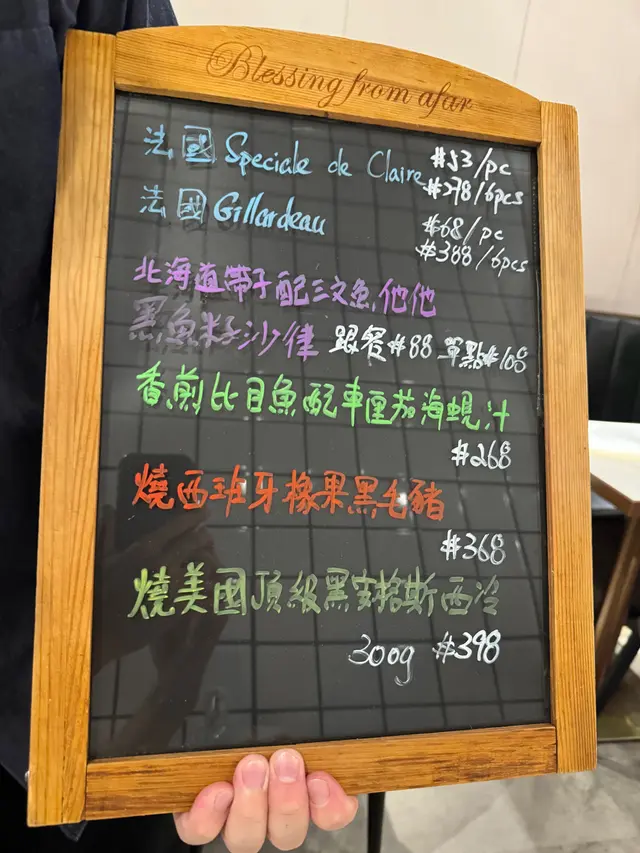 Blessing from afar
法國 Speciale de Claire #53/pc
#278/6pcs
法國 Gillardeau #68/pc
#388/6pcs
北海道帶子配三文魚他他
黑魚籽沙律 跟餐#88 單點#108
香煎比目魚配車厘茄海蜆汁
#268
燒西班牙橡果黑毛豬
#368
燒美國頂級黑安格斯西冷
300g #398